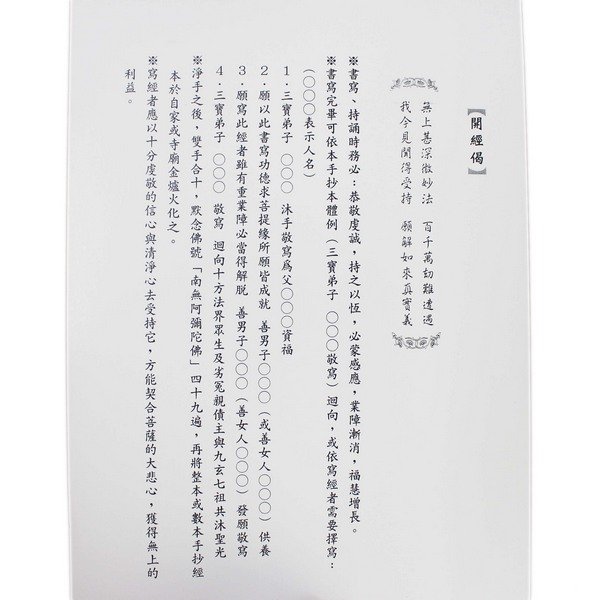 【開經偈】
無上甚深微妙法　百千萬劫難遭遇
我今見聞得受持　願解如來真實義
※書寫、持誦時務必：恭敬虔誠，持之以恆，必蒙感應，業障漸消，福慧增長。
※書寫完畢可依本手抄本體例（三寶弟子　○○○敬寫）迴向，或依寫經者需要擇寫：
（○○○表示人名）
1．三寶弟子　○○○　沐手敬寫為父○○○資福
2．願以此書寫功德求菩提緣所願皆成就　善男子○○○（或善女人○○○）供養
3．願寫此經者雖有重業障必當得解脫　善男子○○○（善女人○○○）發願敬寫
4．三寶弟子　○○○　敬寫　迴向十方法界眾生及劣冤親債主與九玄七祖共沐聖光
※淨手之後，雙手合十，默念佛號「南無阿彌陀佛」四十九遍，再將整本或數本手抄經
本於自家或寺廟金爐火化之。
※寫經者應以十分虔敬的信心與清淨心去受持它，方能契合菩薩的大悲心，獲得無上的
利益。